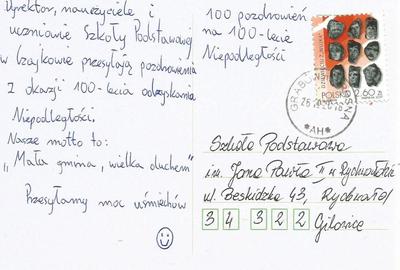 Dyrektor, nauczyciele i
uczniowie Szkoły Podstawowej
w Czajkowie przesyłają pozdrowienia
z okazji 100-lecia odzyskania
Niepodległości.
Nasze motto to:
„Mała gmina, wielka duchem”
Przesyłamy moc uśmiechów
100 pozdrowień
na 100-lecie
Niepodległości
POLSKA
2,60 zł
*AH*
Szkoła Podstawowa
im. Jana Pawła II w Rychwałdzie
ul. Beskidzka 43, Rychwałd
34 322
Gilowice